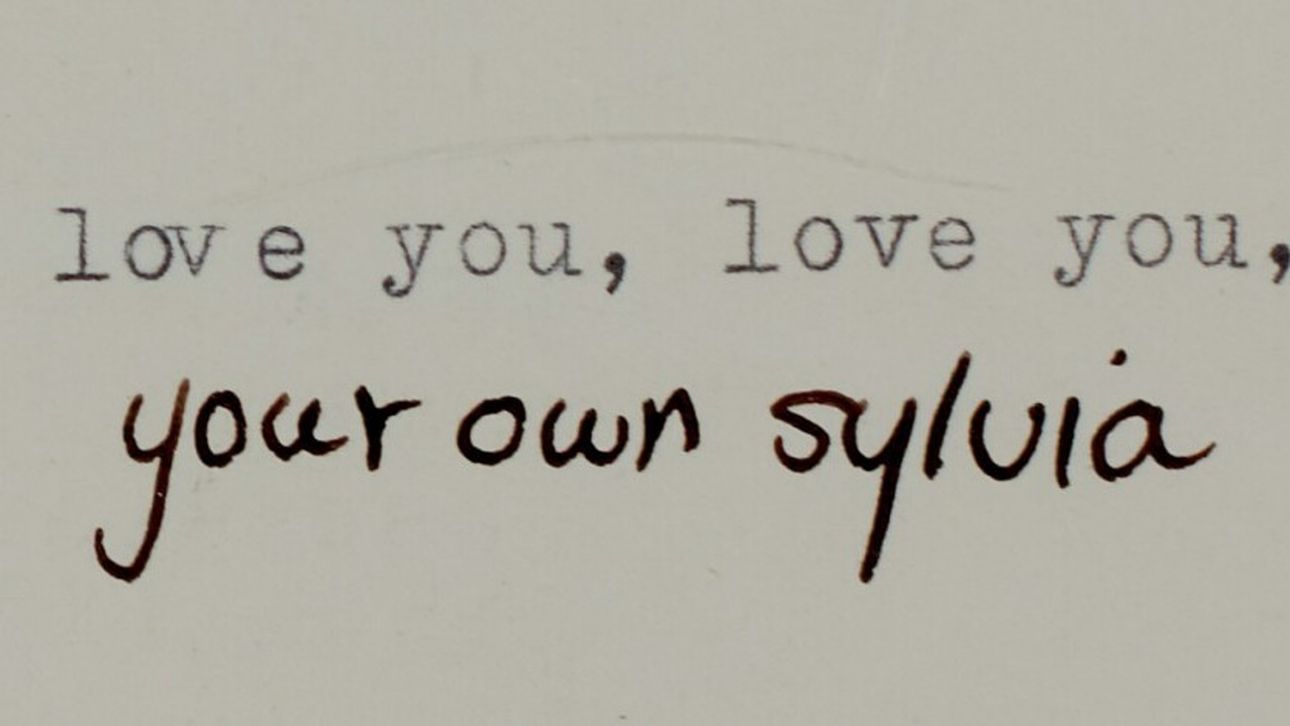 love you, love you,
your own sylvia